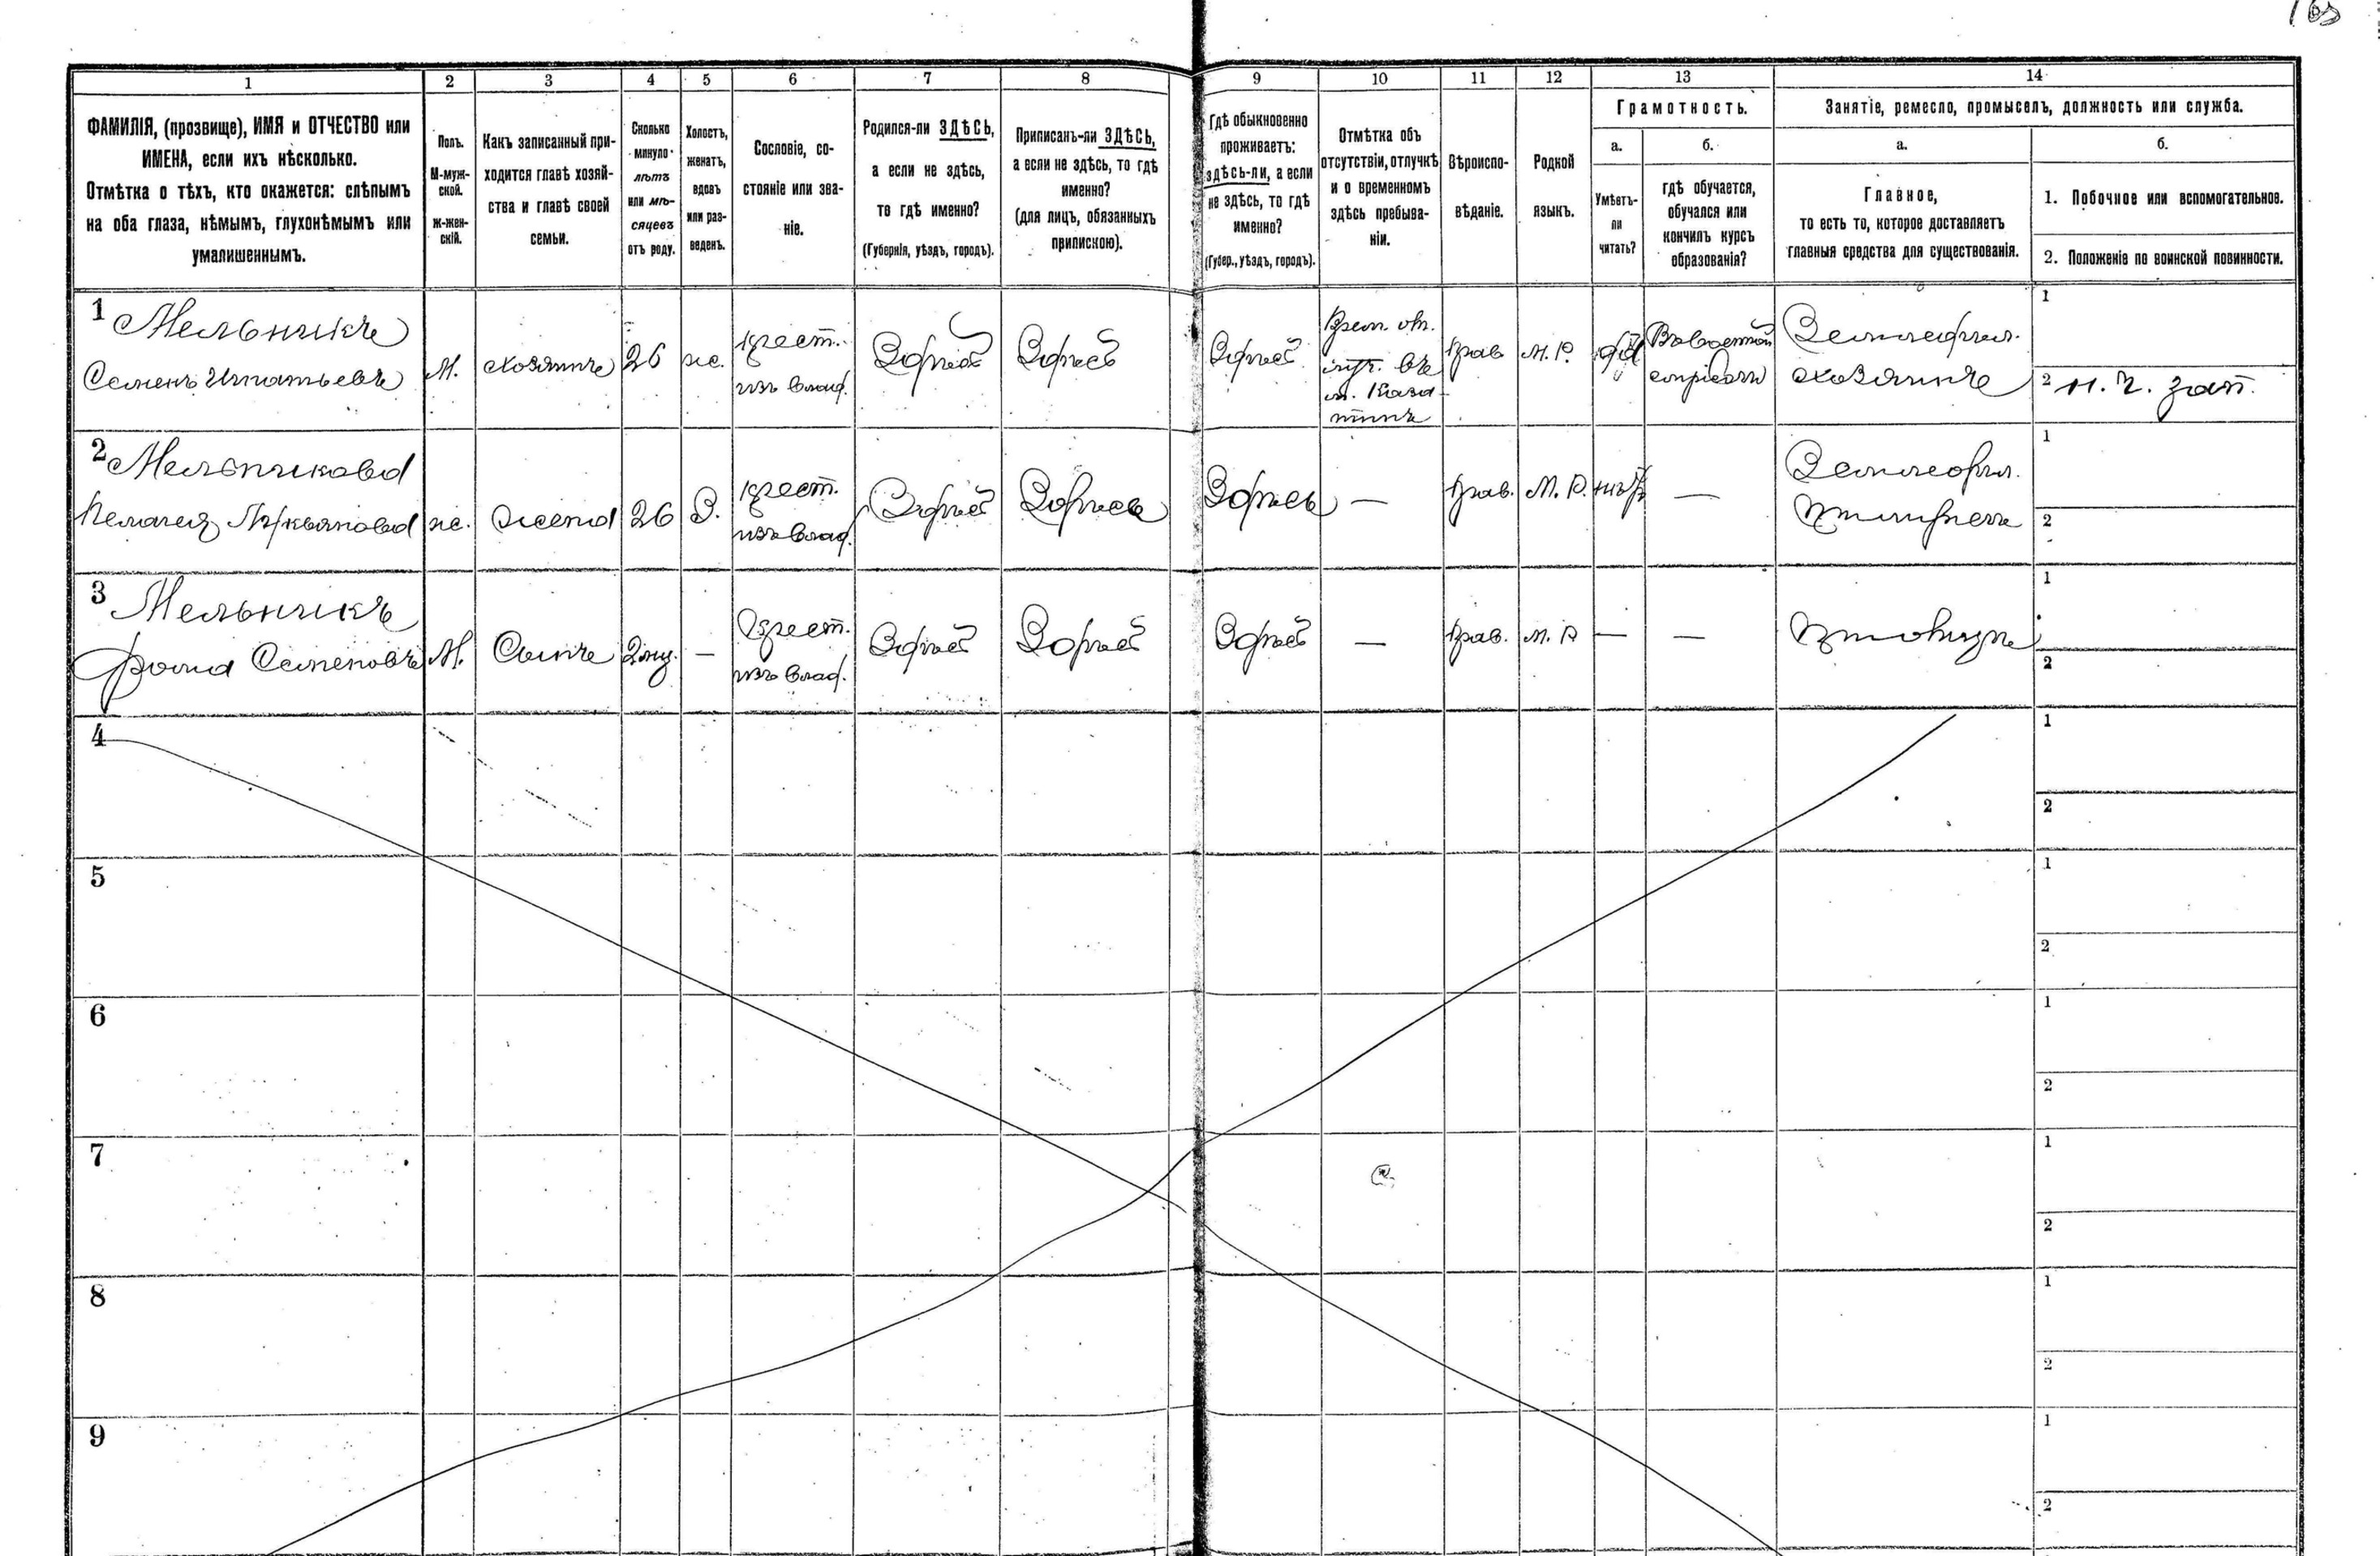 163
1
2
3
4
5
6
7
8
9
10
11
12
13
14
ФАМИЛІЯ, (прозвище), ИМЯ и ОТЧЕСТВО или
ИМЕНА, если ихъ нѣсколько.
Отмѣтка о тѣхъ, кто окажется: слѣпымъ
на оба глаза, нѣмымъ, глухонѣмымъ или
умалишеннымъ.
Полъ.
М-муж-
ской.
ж-жен-
скій.
Какъ записанный при-
ходится главѣ хозяй-
ства и главѣ своей
семьи.
Сколько
минуло
лѣтъ
или мѣ-
сяцевъ
отъ роду.
Холостъ,
женатъ,
вдовъ
или раз-
веденъ.
Сословіе, со-
стояніе или зва-
ніе.
Родился-ли ЗДѢСЬ,
а если не здѣсь,
то гдѣ именно?
(Губернія, уѣздъ, городъ).
Приписанъ-ли ЗДѢСЬ,
а если не здѣсь, то гдѣ
именно?
(для лицъ, обязанныхъ
припискою).
Гдѣ обыкновенно
проживаетъ:
здѣсь-ли, а если
не здѣсь, то гдѣ
именно?
(Губер., уѣздъ, городъ).
Отмѣтка объ
отсутствіи, отлучкѣ
и о временномъ
здѣсь пребыва-
ніи.
Вѣроиспо-
вѣданіе.
Родной
языкъ.
Грамотность.
а.
Умѣетъ-
ли
читать?
б.
гдѣ обучается,
обучался или
кончилъ курсъ
образованія?
Занятіе, ремесло, промыселъ, должность или служба.
а.
Главное,
то есть то, которое доставляетъ
главныя средства для существованія.
б.
1. Побочное или вспомогательное.
2. Положеніе по воинской повинности.
1 Мельникъ
Семенъ Игнатьевъ
М.
хозяинъ
26
ж.
крест.
изъ влад.
Здѣсь
Здѣсь
Здѣсь
Врем. от.
въ
м. Каза-
тинъ
прав
М. Р.
да
Земледѣл.
хозяинъ
1
2 н. ч. зап.
2 Мельникова
Пелагея Лукьянова
ж.
жена
26
З.
крест.
изъ влад.
Здѣсь
Здѣсь
Здѣсь
—
прав.
М. Р.
нѣтъ
—
Земледѣл.
при мужѣ
1
2
3 Мельникъ
Фома Семеновъ
М.
Сынъ
2 мц.
—
Крест.
изъ влад.
Здѣсь
Здѣсь
Здѣсь
—
прав.
М. Р
—
—
при отцѣ
1
2
4
1
2
5
1
2
6
1
2
7
1
2
8
1
2
9
1
2